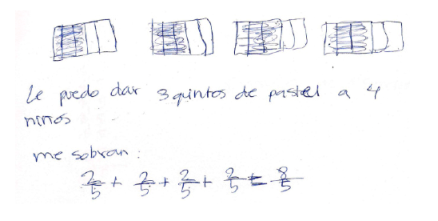 Le puedo dar 3 quintos de pastel a 4
niños
me sobran:
2/5 + 2/5 + 2/5 + 2/5 = 8/5